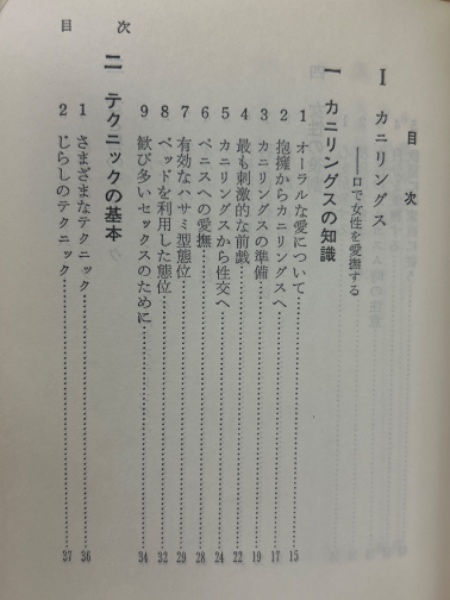 目次
Ⅰ カニリングス
――口で女性を愛撫する
一 カニリングスの知識
1 オーラルな愛について……15
2 抱擁からカニリングスへ……17
3 カニリングスの準備……19
4 最も刺激的な前戯……22
5 カニリングスから性交へ……24
6 ペニスへの愛撫……28
7 有効なハサミ型態位……29
8 ベッドを利用した態位……32
9 歓び多いセックスのために……34
二 テクニックの基本
1 さまざまなテクニック……36
2 じらしのテクニック……37
目次